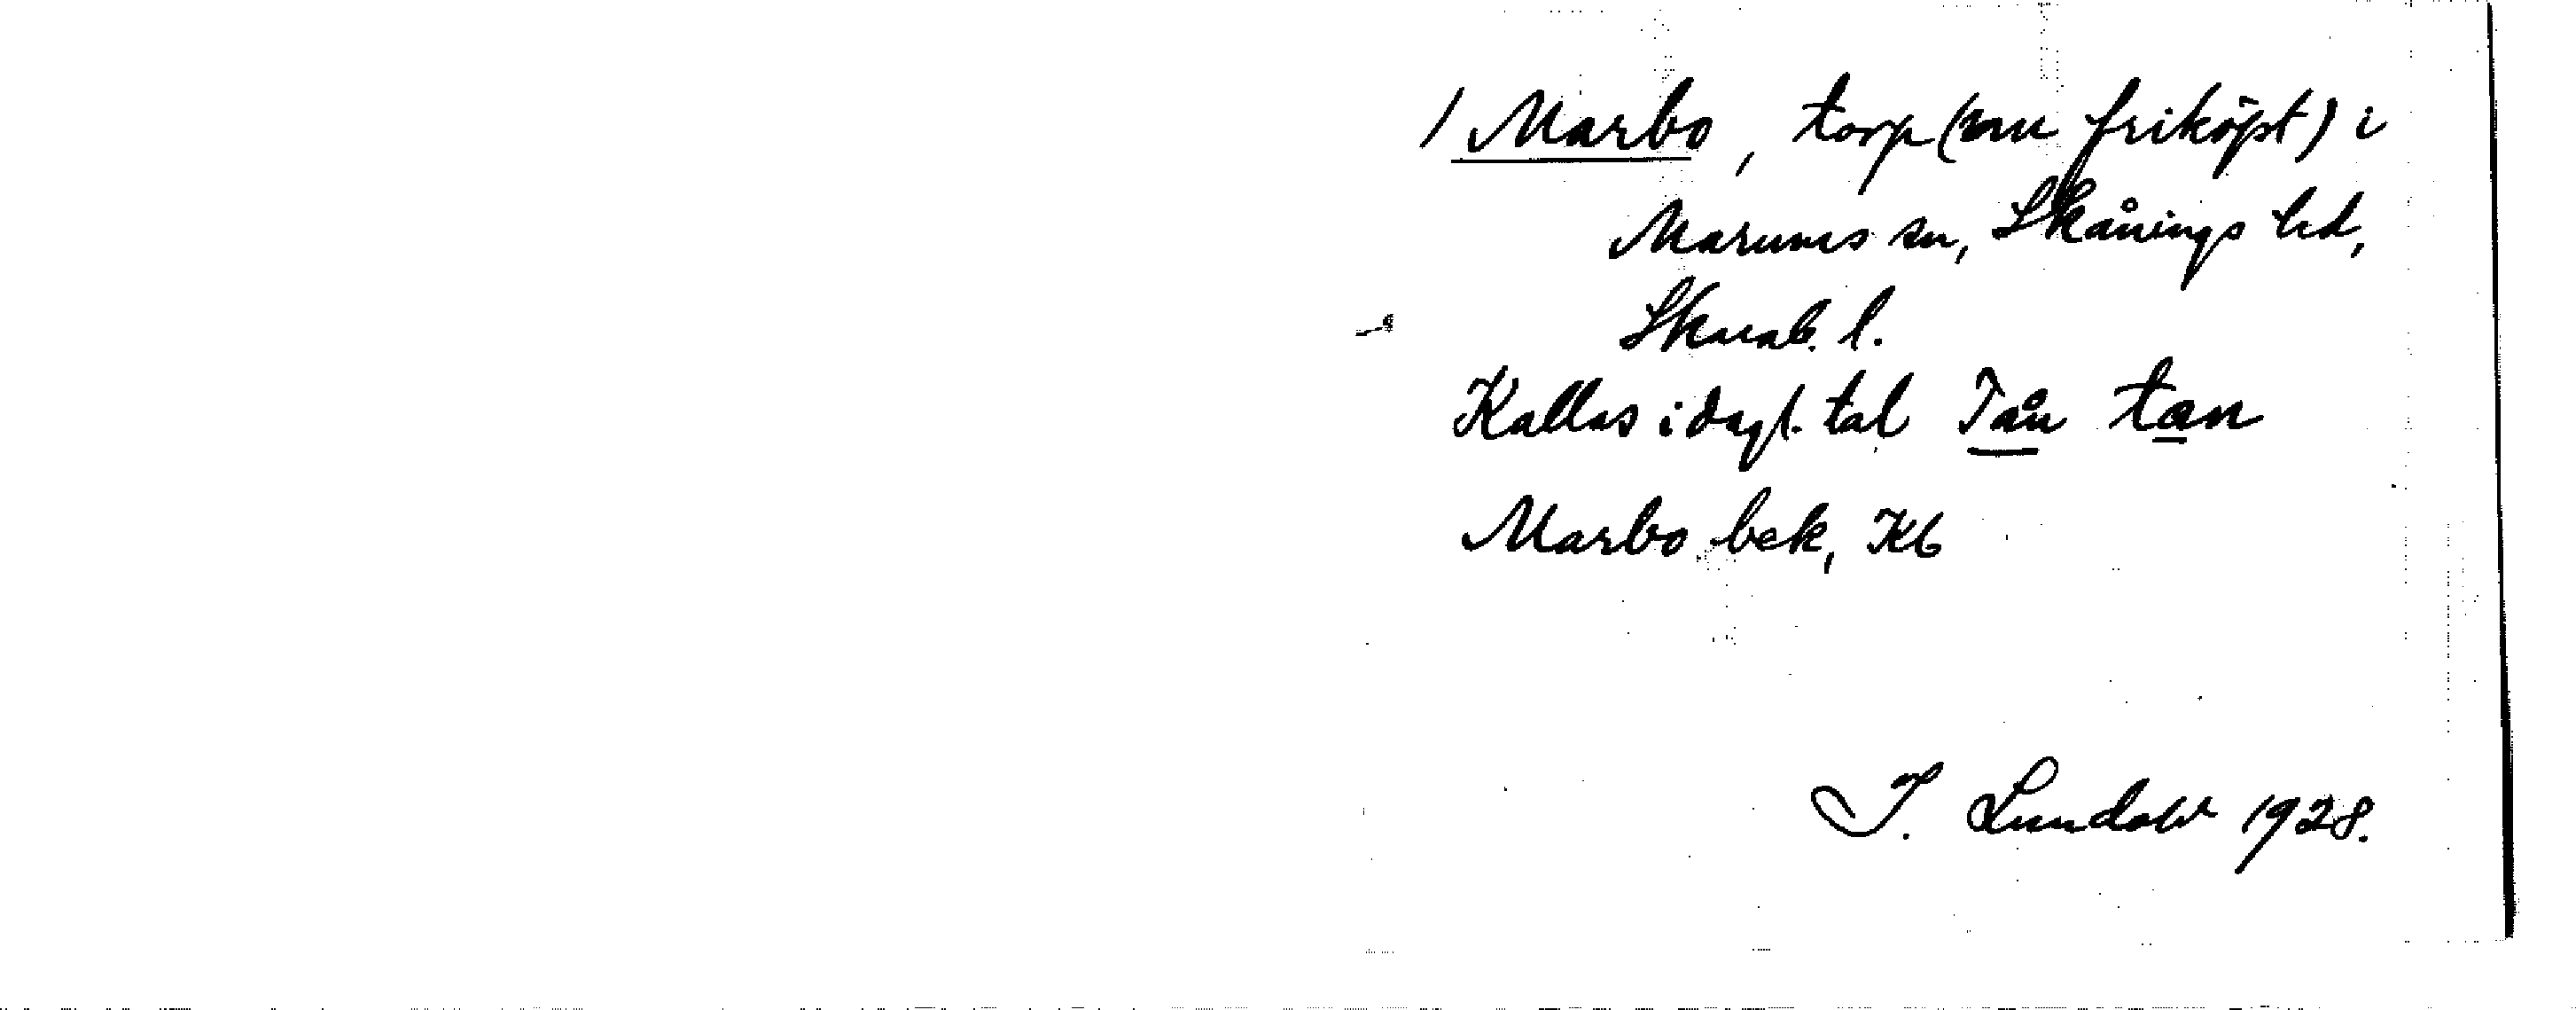 / Marbo, torp (nu friköpt) i
Marums sn, Skånings hd,
Skarab. l.
Kallas i dagl. tal Tån tan
Marbo bek, Kb
T. Lundahl 1928.